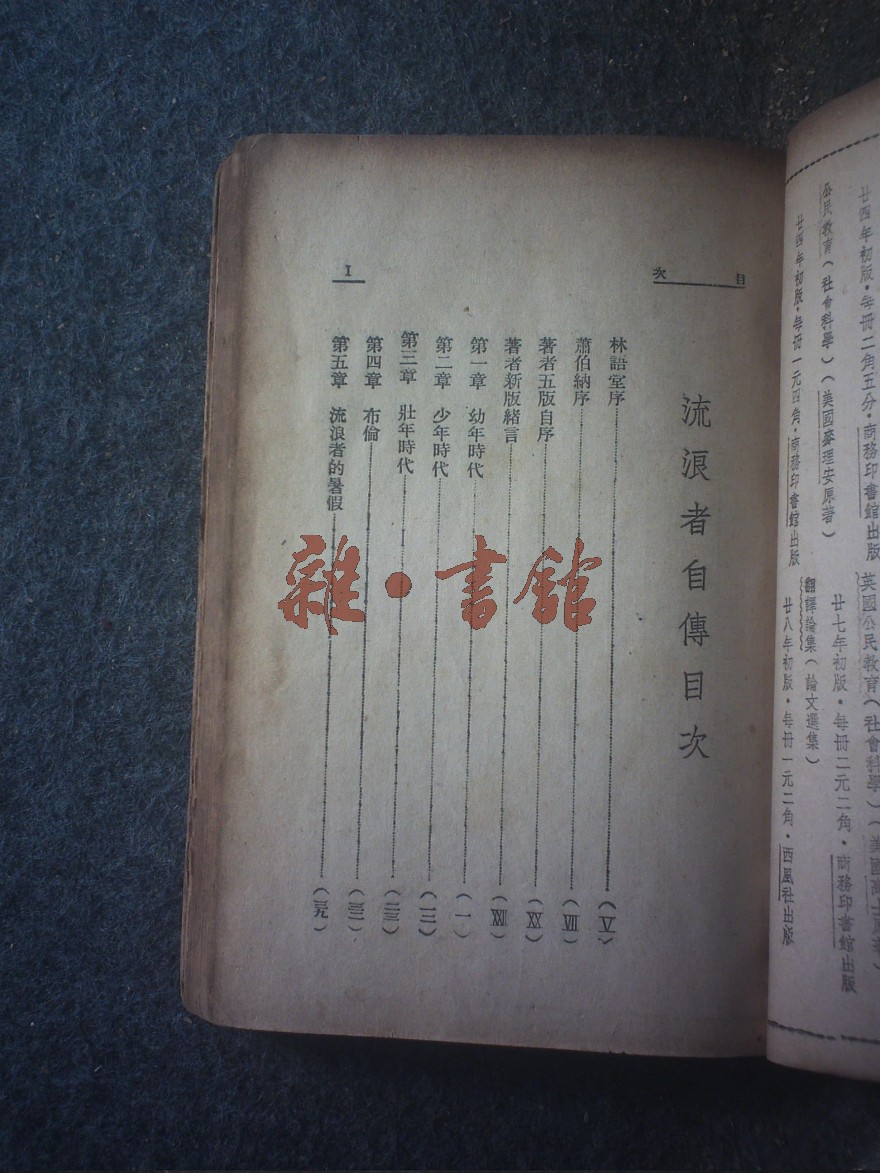 廿四年初版·每冊二角五分·商務印書館出版
英國公民教育(社會科學)(美國
公民教育(社會科學)(美國麥理安原著)
廿七年初版·每冊二元二角·商務印書館出版
廿四年初版·每冊一元四角·商務印書館出版
翻譯論集(論文選集)
廿八年初版·每冊一元二角·西風社出版
目次
I
流浪者自傳目次
林語堂序(V)
蕭伯納序(VII)
著者五版自序(XX)
著者新版緒言(XXII)
第一章 幼年時代(一)
第二章 少年時代(一二)
第三章 壯年時代(二三)
第四章 布倫(三二)
第五章 流浪者的暑假(三九)
雜·書館